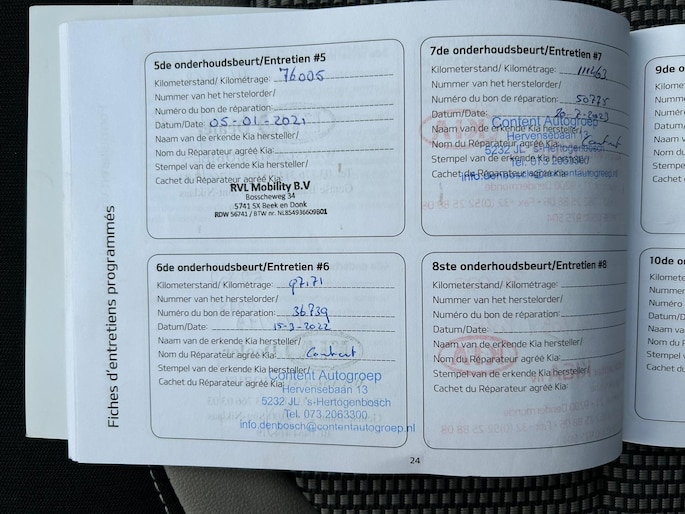 Fiches d'entretiens programmés
5de onderhoudsbeurt/Entretien #5
Kilometerstand/ Kilométrage: 76005
Nummer van het herstelorder/
Numéro du bon de réparation:
Datum/Date: 05-01-2021
Naam van de erkende Kia hersteller/
Nom du Réparateur agréé Kia:
Stempel van de erkende Kia hersteller/
Cachet du Réparateur agréé Kia:
RVL Mobility B.V
Bosscheweg 34
5741 SX Beek en Donk
RDW 56741 / BTW nr. NL854936609B01
6de onderhoudsbeurt/Entretien #6
Kilometerstand/ Kilométrage: 97171
Nummer van het herstelorder/
Numéro du bon de réparation: 36739
Datum/Date: 15-3-2022
Naam van de erkende Kia hersteller/
Nom du Réparateur agréé Kia: Content
Stempel van de erkende Kia hersteller/
Cachet du Réparateur agréé Kia:
Content Autogroep
Hervensebaan 13
5232 JL 's-Hertogenbosch
Tel. 073.2063300
info.denbosch@contentautogroep.nl
7de onderhoudsbeurt/Entretien #7
Kilometerstand/ Kilométrage: 111463
Nummer van het herstelorder/
Numéro du bon de réparation: 50775
Datum/Date: 2023
Naam van de erkende Kia hersteller/
Nom du Réparateur agréé Kia: Content
Stempel van de erkende Kia hersteller/
Cachet du Réparateur agréé Kia:
Content Autogroep
Hervensebaan 13
5232 JL 's-Hertogenbosch
Tel. 073.2063300
info.denbosch@contentautogroep.nl
8ste onderhoudsbeurt/Entretien #8
Kilometerstand/ Kilométrage:
Nummer van het herstelorder/
Numéro du bon de réparation:
Datum/Date:
Naam van de erkende Kia hersteller/
Nom du Réparateur agréé Kia:
Stempel van de erkende Kia hersteller/
Cachet du Réparateur agréé Kia:
24
9de o
Kilomete
Numm
Numéro
Datum/
Naam v
Nom du
Stempe
Cachet
10de o
Kilomet
Numme
Numéro
Datum/
Naam va
Nom du
Stempe
Cachet